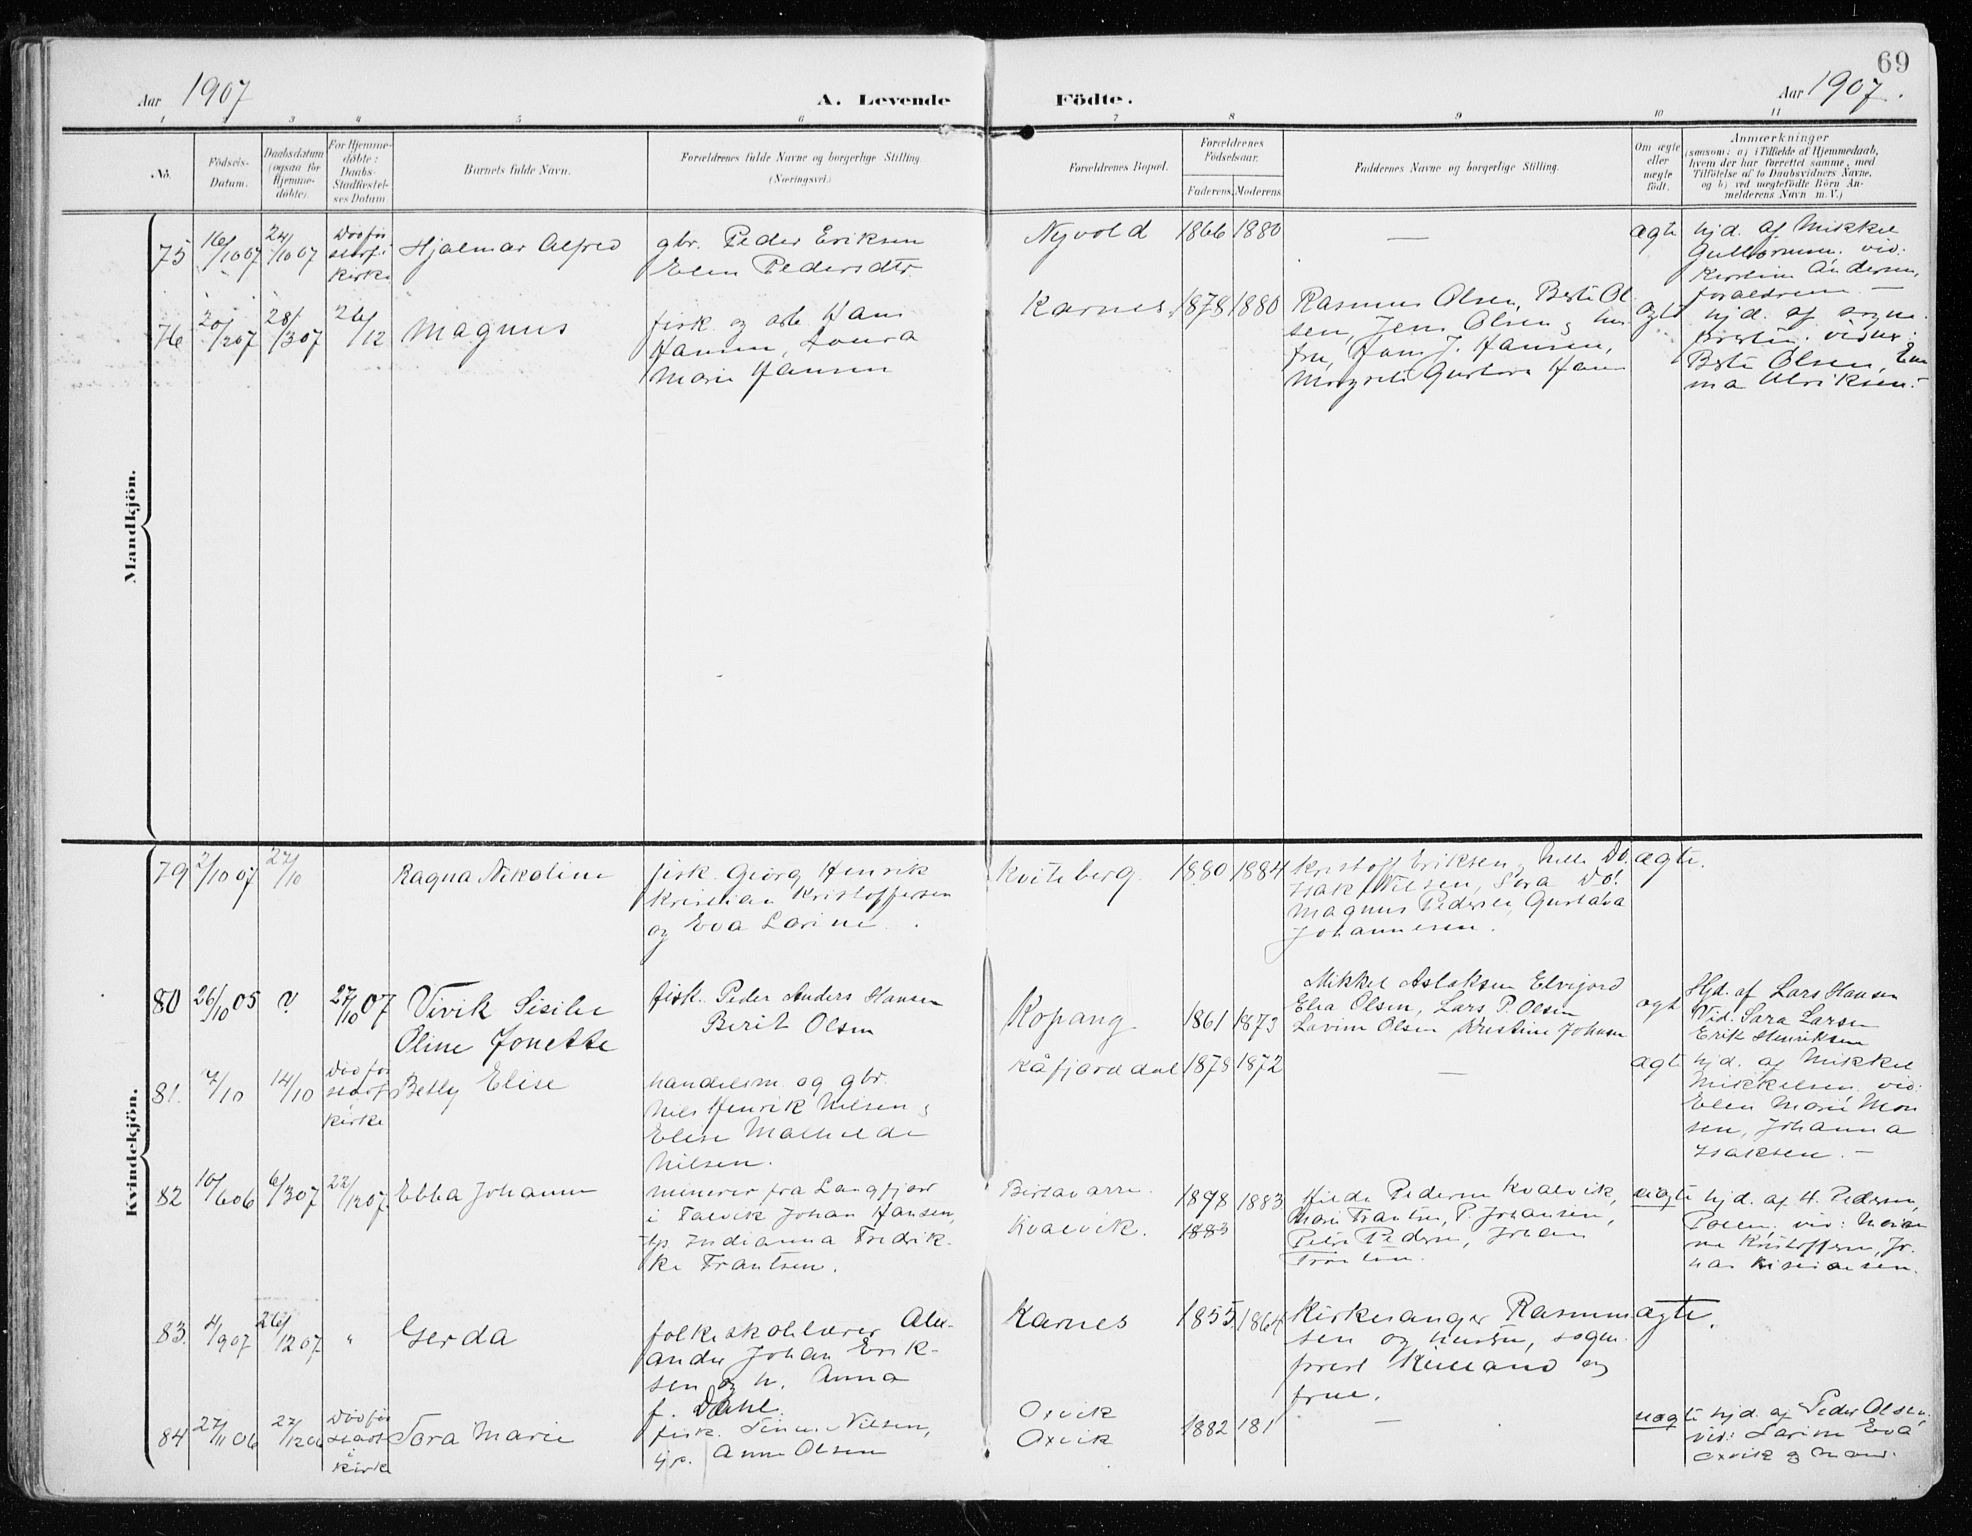 69
Aar 1907
A. Levende
Födte.
Aar 1907.
1 2 3 4 5 6 7 8 9 10 11
No.
Födsels-
Datum.
Daabsdatum
(ogsaa for
Hjemme-
døbte).
For Hjemme-
døbte:
Daabs-
Stadfæstel-
ses Datum.
Barnets fulde Navn.
Forældrenes fulde Navne og borgerlige Stilling.
(Næringsvei.)
Forældrenes Bopæl.
Forældrenes
Fødselsaar.
Faderens.
Moderens.
Faddernes Navne og borgerlige Stilling.
Om ægte
eller
uægte
født.
Anmærkninger
(saasom: a) i Tilfælde af Hjemmedaab,
hvem der har forrettet samme, med
Tilföielse af to Daabsvidners Navne,
og b) ved uægtefödte Börn An-
melderens Navn m. V.)
Mandkjön.
75
16/10 07
24/10 07
Död før
stadf. i
kirke
Hjalmar Alfred
gbr. Peder Eriksen
Elen Pedersdtr
Nyvold
1866
1880
—
ægte
hjd. af Mikkel
vid.
Kirstine Andersen,
forældrene. —
76
20/1 207
28/3 07
26/12
Magnus
fisk. og arb. Hans
Hansen, Laura
Marie Hansen
Karnes.
1878
1880
Rasmus Olsen, Berte Ol
sen, Jens Olsen og hus
fru, Hans J. Hansen,
Gustava Hans
ægte
hjd. af sogne-
presten. vidner:
Berte Olsen, Em
ma Ulriksen.
Kvindekjön.
79
2/10 07
27/10
Ragna Nikoline
fisk. Georg Henrik
Kristian Kristoffersen
og Eva Larine.
Kviteberg.
1880
1884
Kristoff Eriksen, Do.
Isak Nilsen, Sara Do!
Magnus Pedersen, Gustava
Johannesen.
ægte.
80
26/10 05
?
27/10 07
Vivik Sisilie
Oline Jonette
fisk. Peder Anders Hansen
Berit Olsen
Kopang
1861
1873
Mikkel Aslaksen Elvejord
Elea Olsen, Lars P. Olsen
Lavine Olsen Kristine Johnsen
ægt
Hjd. af Lars Hansen
Vid. Sara Larsen
Erik Henriksen
81.
7/10
14/10
Död før
stadf
i
kirke
Betty Elise
handelsm. og gbr.
Nils Henrik Nilsen,
Elise Mathilde
Nilsen.
Kåfjorddal
1878
1872
—
ægt
hjd. af Mikkel
Mikkelsen. vid.
Elen Marie Mon
sen, Johanna
Isaksen. —
82
10/6 06
6/3 07
22/12 07.
Ebba Johanne
minerer fra Langfjord
i Talvik Johan Hansen,
tp. Indianna Fredrik-
ke Frantsen.
Birtavarre.
Kvalvik.
1878
1883
1883
Hilda Pedersen Kvalvik,
Marie Frantsen, P. Johansen,
Petra Pedersen, Johan
Frantsen.
uægte
hjd. af H. Pedersen,
vid: Marian
ne Kristoffersen, Jo-
han Kristiansen.
83.
4/9 07
26/12 07
"
Gerda
folkeskolelærer Alex-
ander Johan Erik-
sen og h. Anna
f. Dahl.
Karnes
1855
1864
Kirkesanger Rasmus
sen og hustru, sogne-
prest Kielland og
frue.
ægte.
84
27/11 06
27/12 06
Död før
stadf
i
kirke
Tora Marie
fisk. Nilsen,
tp. Anna Olsen
Oxvik
Oxvik
1882
181
—
uægte
hjd. af Peder Olsen,
vid: Larine Eva
Oxvik og